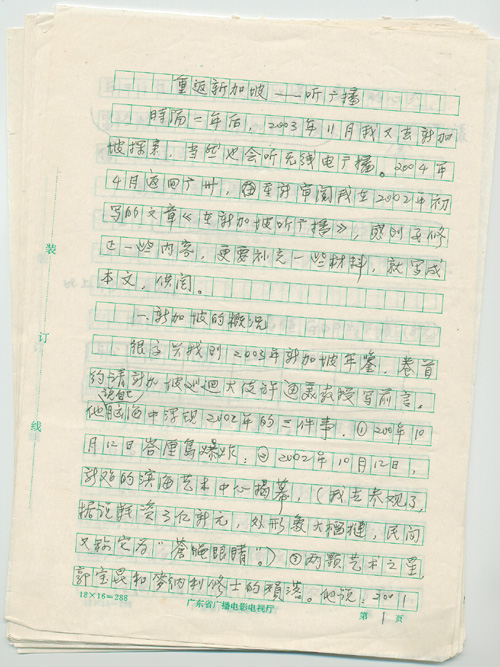 重返新加坡——听广播
時隔二年后，2003年11月我又去新加
坡探亲，当然也会听无线电广播。2004年
4月返回广州，重新审阅我在2002年初
写的文章《在新加坡听广播》，感到要修
正一些内容，更要补充一些材料，就写成
本文，供阅。
一.新加坡的概况
很高兴找到2003年新加坡年鉴，卷首
约请新加坡巡迴大使许通美教授写前言。
说自己
他脑海中浮现2002年的三件事，①2002年10
月12日峇厘島爆炸；②2002年10月12日，
新加的滨海艺术中心揭幕，（我去参观了，
据说耗资6亿新元，外形象大榴梿，民间
又称它为“苍蝇眼睛”。）③两颗艺术之星，
郭宝崑和麥纳利修士的殞落。他说：2001
装
订
线
18×16=288
广东省广播电影电视厅
第 1 页